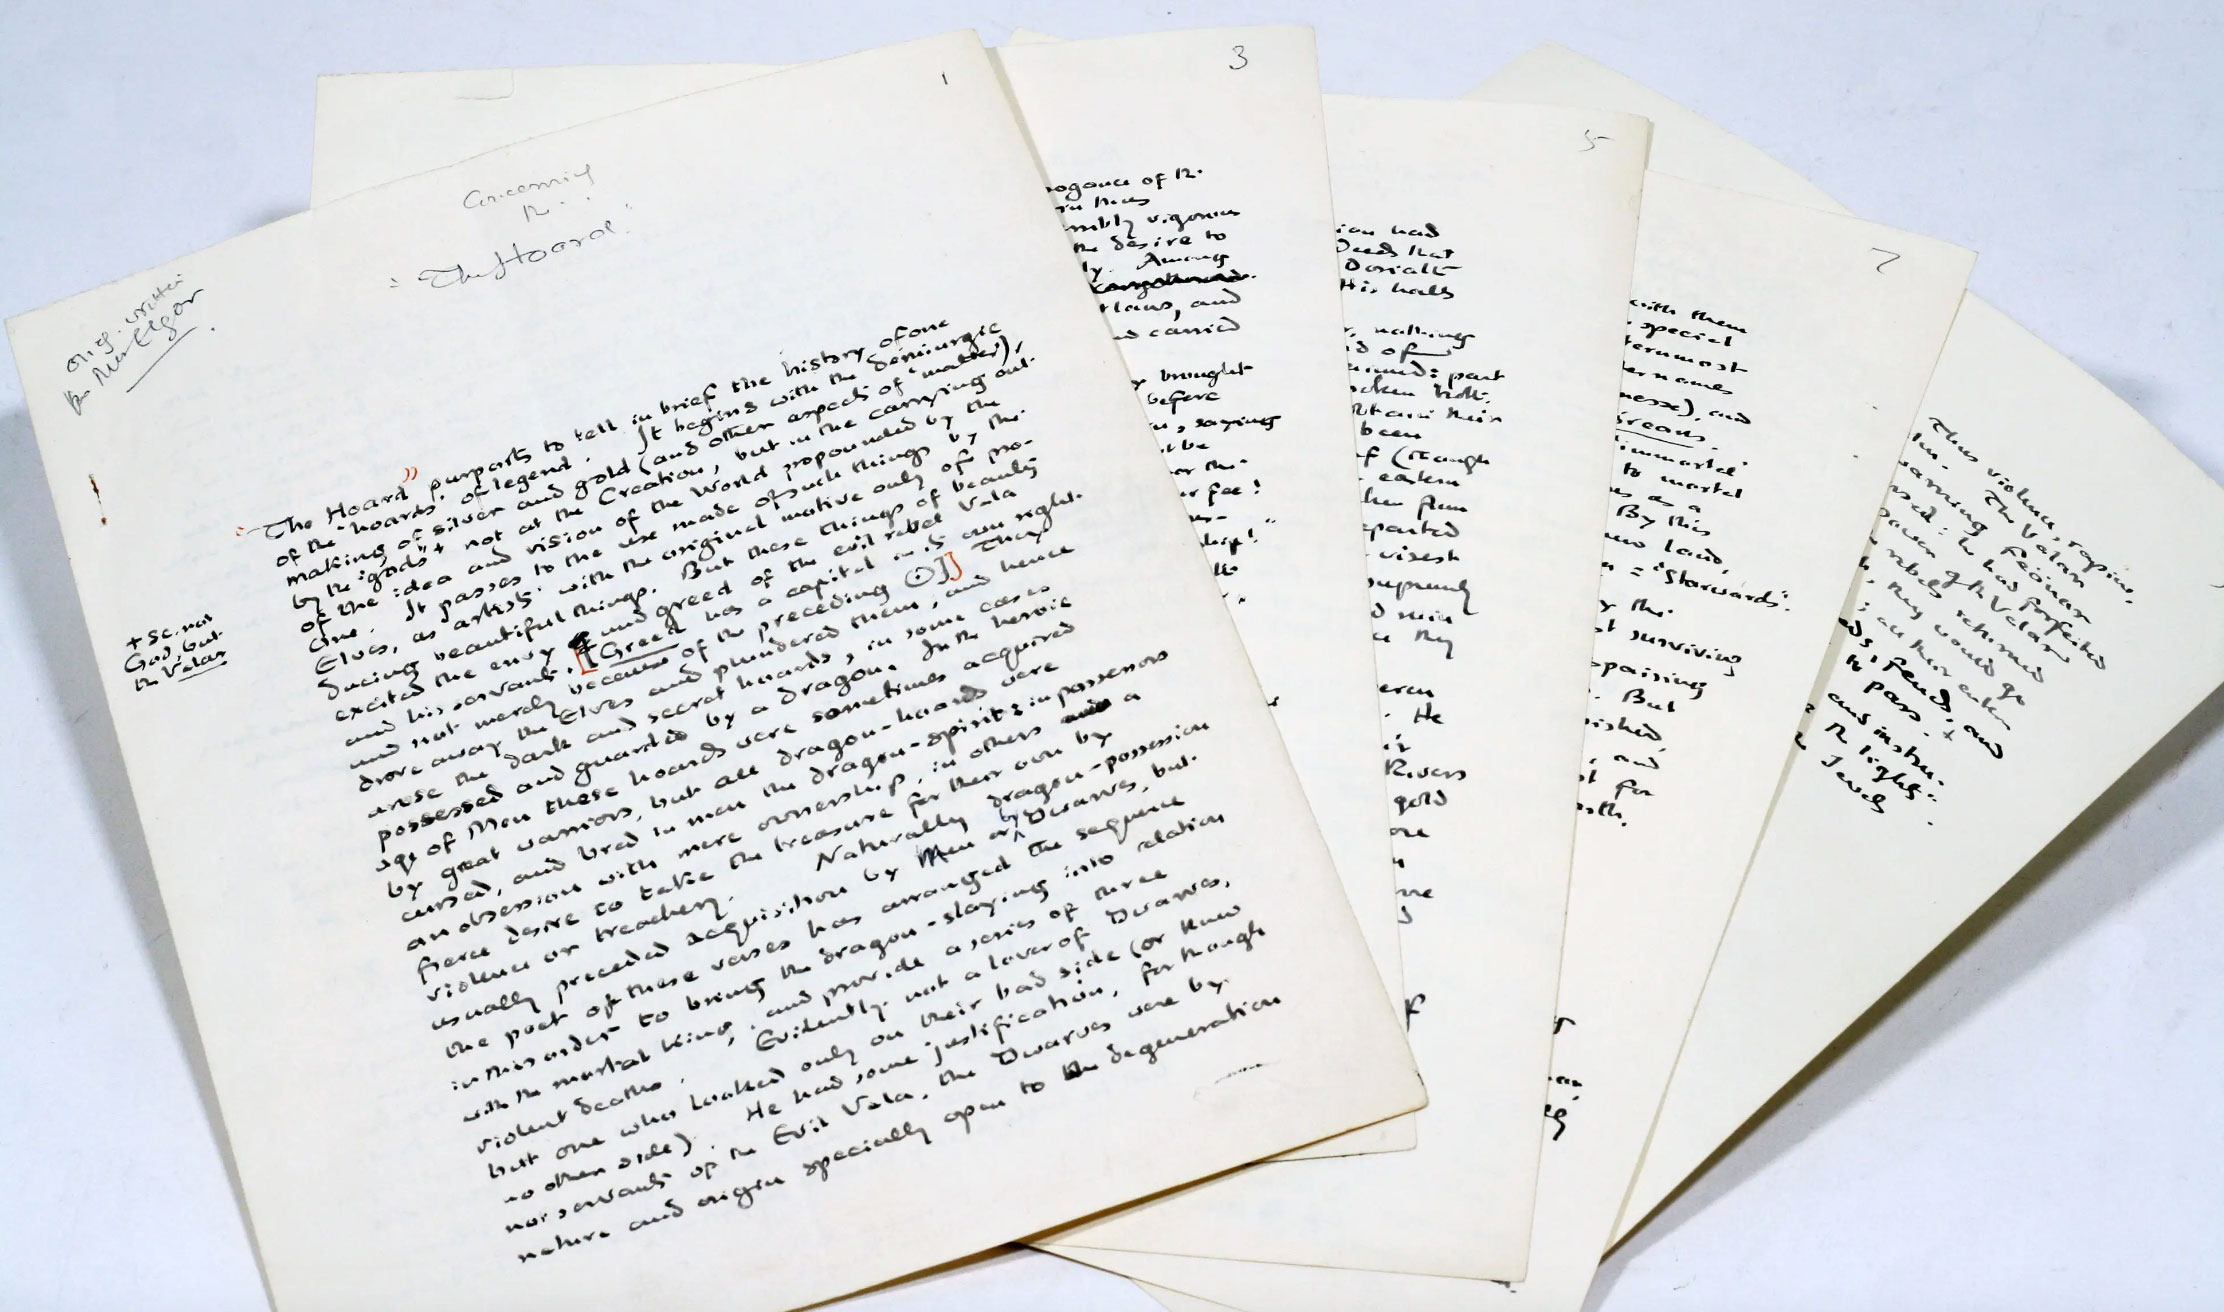 1
Concerning
"The Hoard"
orig. written
for Mrs Elgar
"The Hoard" purports to tell in brief the history of one
of the 'hoards' of legend. It begins with the demiurgic
making of silver and gold (and other aspects of 'matter'),
by the "gods"+ not at the Creation, but in the carrying out
of the idea and vision of the World propounded by the
One. It passes to the use made of such things by the
Elves, as artists with the original motive only of pro-
ducing beautiful things. But these things of beauty
excited the envy and greed of the evil rebel Vala
and his servants. [Greed has a capital in its own right
and not merely because of the preceding (.)] They
drove away the Elves and plundered them, and hence
arose the dark and secret hoards, in some cases
possessed and guarded by a dragon. In the heroic
age of Men these hoards were sometimes acquired
by great warriors, but all dragon-hoards were
cursed, and bred in men the dragon-spirit: in possessors
an obsession with mere ownership, in others a
fierce desire to take the treasure for their own by
violence or treachery. Naturally dragon-possession
usually preceded acquisition by Men or by Dwarves, but
the poet of these verses has arranged the sequence
in this order to bring the dragon-slaying into relation
with the mortal king, and provide a series of three
violent deaths. Evidently not a lover of Dwarves,
but one who looked only on their bad side (or knew
no other side). He had some justification, for though
not servants of the Evil Vala, the Dwarves were by
nature and origin specially open to the degeneration
+ sc. not
God, but
the Valar
3
of R.
in this
vigorous
the desire to
Among
and
carried
brought
before
saying
be
or the
fee!
5
had
Deeds that
Doriath
His halls
nothing
of
part
their
been
of (though
eastern
departed
supremely
they
He
Rivers
gold
7
with them
special
and
'immortal'
to mortal
as a
By this
land,
= "Starwards".
the
surviving
But
and
for
Thus violence, rapine,
The Valar
warning Fëanor
he had forfeited
power of the Valar
rebels returned
they would go
feud, and
to pass. +
the light
Jewels